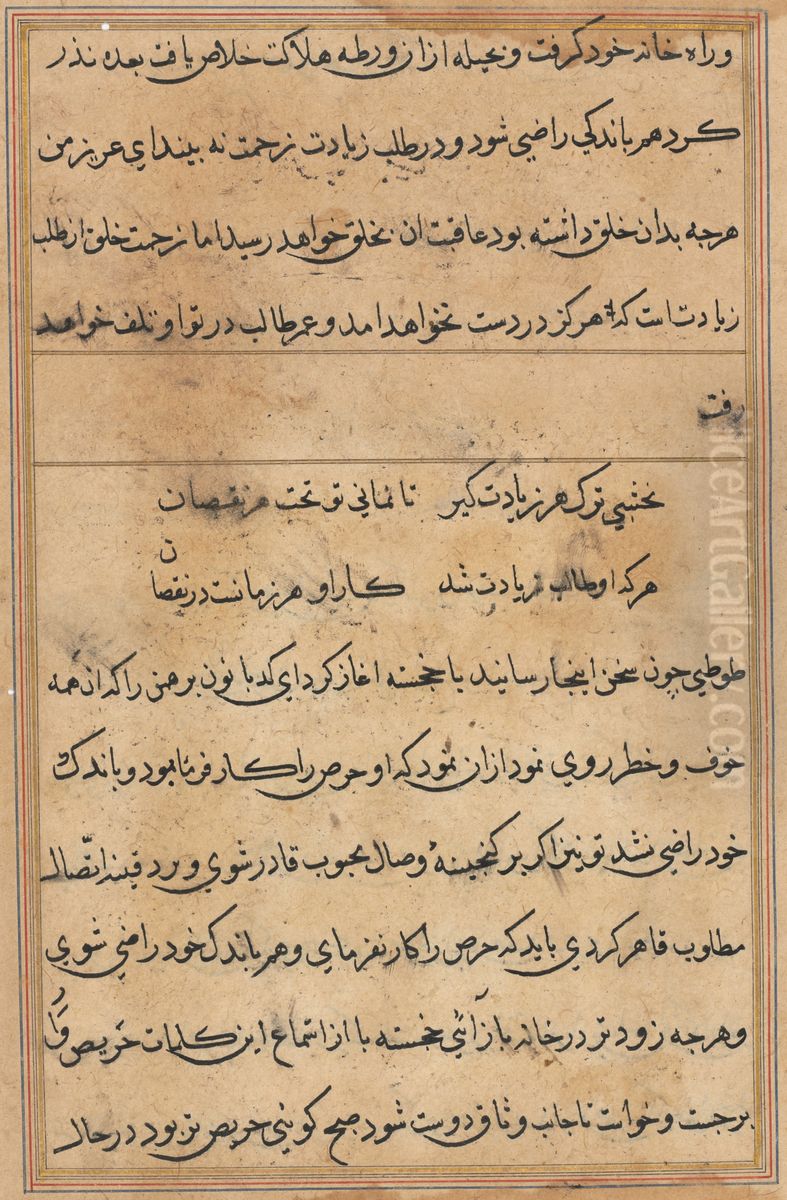 و راه خانه خود کرفت و بحیله ازان ورطه هلاکت خلاص یافت بعده نذر
کرد هم باندکي راضی شود و در طلب زیادت زحمت نه بیند اي عزیز من
هرجه بدان خلق داشته بود عاقبت ان بخلق خواهد رسید اما زحمت خلق از طلب
زیادت است که هرکز در دست نخواهد امد و عمر طالب در تو او تلف خواهد
رفت
نخشبي ترک هر زیادت کیر تا نمانی تو تحت هر نقصان
هرکه او طالب زیادت شد کار او هر زمانست در نقصان
طوطي چون سخن اینجا رسانید با خجسته اغاز کرد اي کدبانون برهمن را که ان همه
خوف و خطر روي نمود ازان نمود که او حرص را کار فرمابود و باندک
خود راضي نشد تو نیز اکر بر کنجینهٔ وصال محبوب قادر شوي و بر دفینه اتّصال
مطلوب قاهر کردي باید که حرص را کار نفرماي و هم باندک خود راضي شوي
و هرجه زودتر در خانه باز آئي خجسته با از استماع این کلمات حریص وَار
برجست و خواست تا جانب وثاق دوست شود صبح کوئي حریص تر بود در حال
iceArtGallery.com